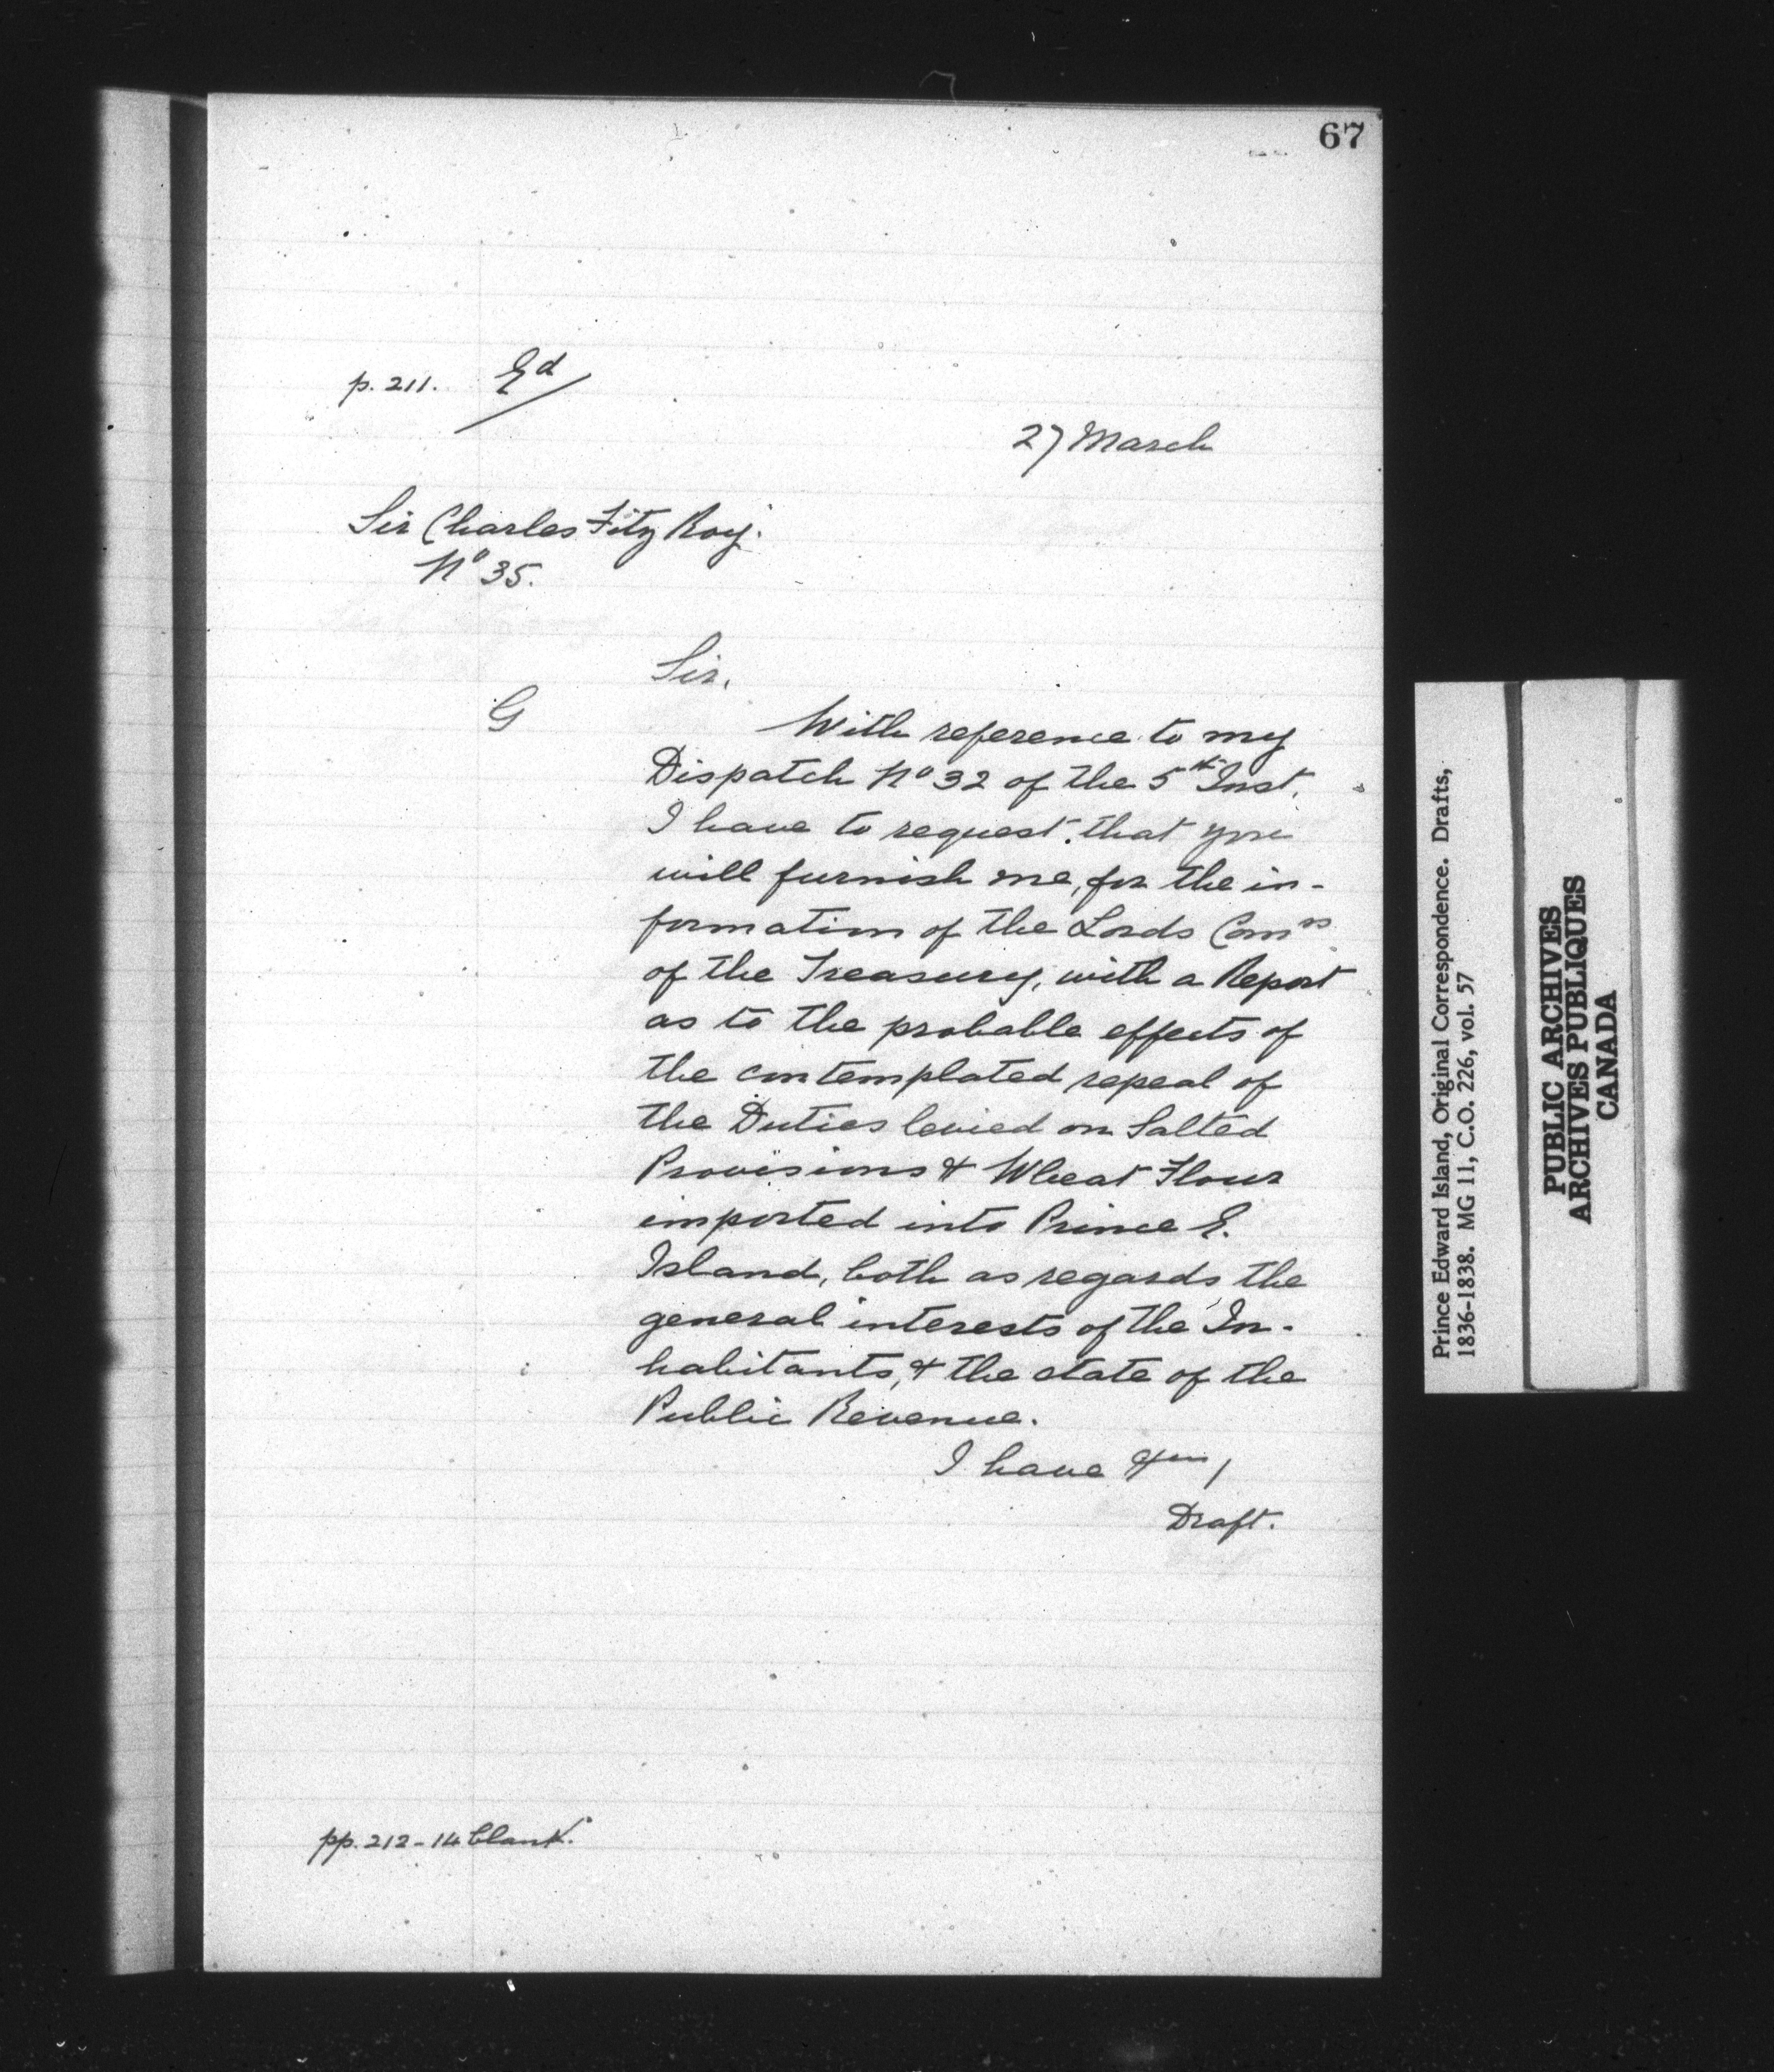 67
p. 211. Ed/
27 March
Sir Charles Fitz Roy.
No 35.
Sir,
G
With reference to my
Dispatch No 32 of the 5th Inst.
I have to request that you
will furnish me, for the in-
formation of the Lords Comrs
of the Treasury, with a Report
as to the probable effects of
the contemplated repeal of
the Duties levied on Salted
Provisions & Wheat Flour
imported into Prince E.
Island, both as regards the
general interests of the In-
habitants, & the state of the
Public Revenue.
I have
Draft.
pp. 212-14 blank.
Prince Edward Island, Original Correspondence. Drafts,
1836-1838. MG 11, C.O. 226, vol. 57
PUBLIC ARCHIVES
ARCHIVES PUBLIQUES
CANADA